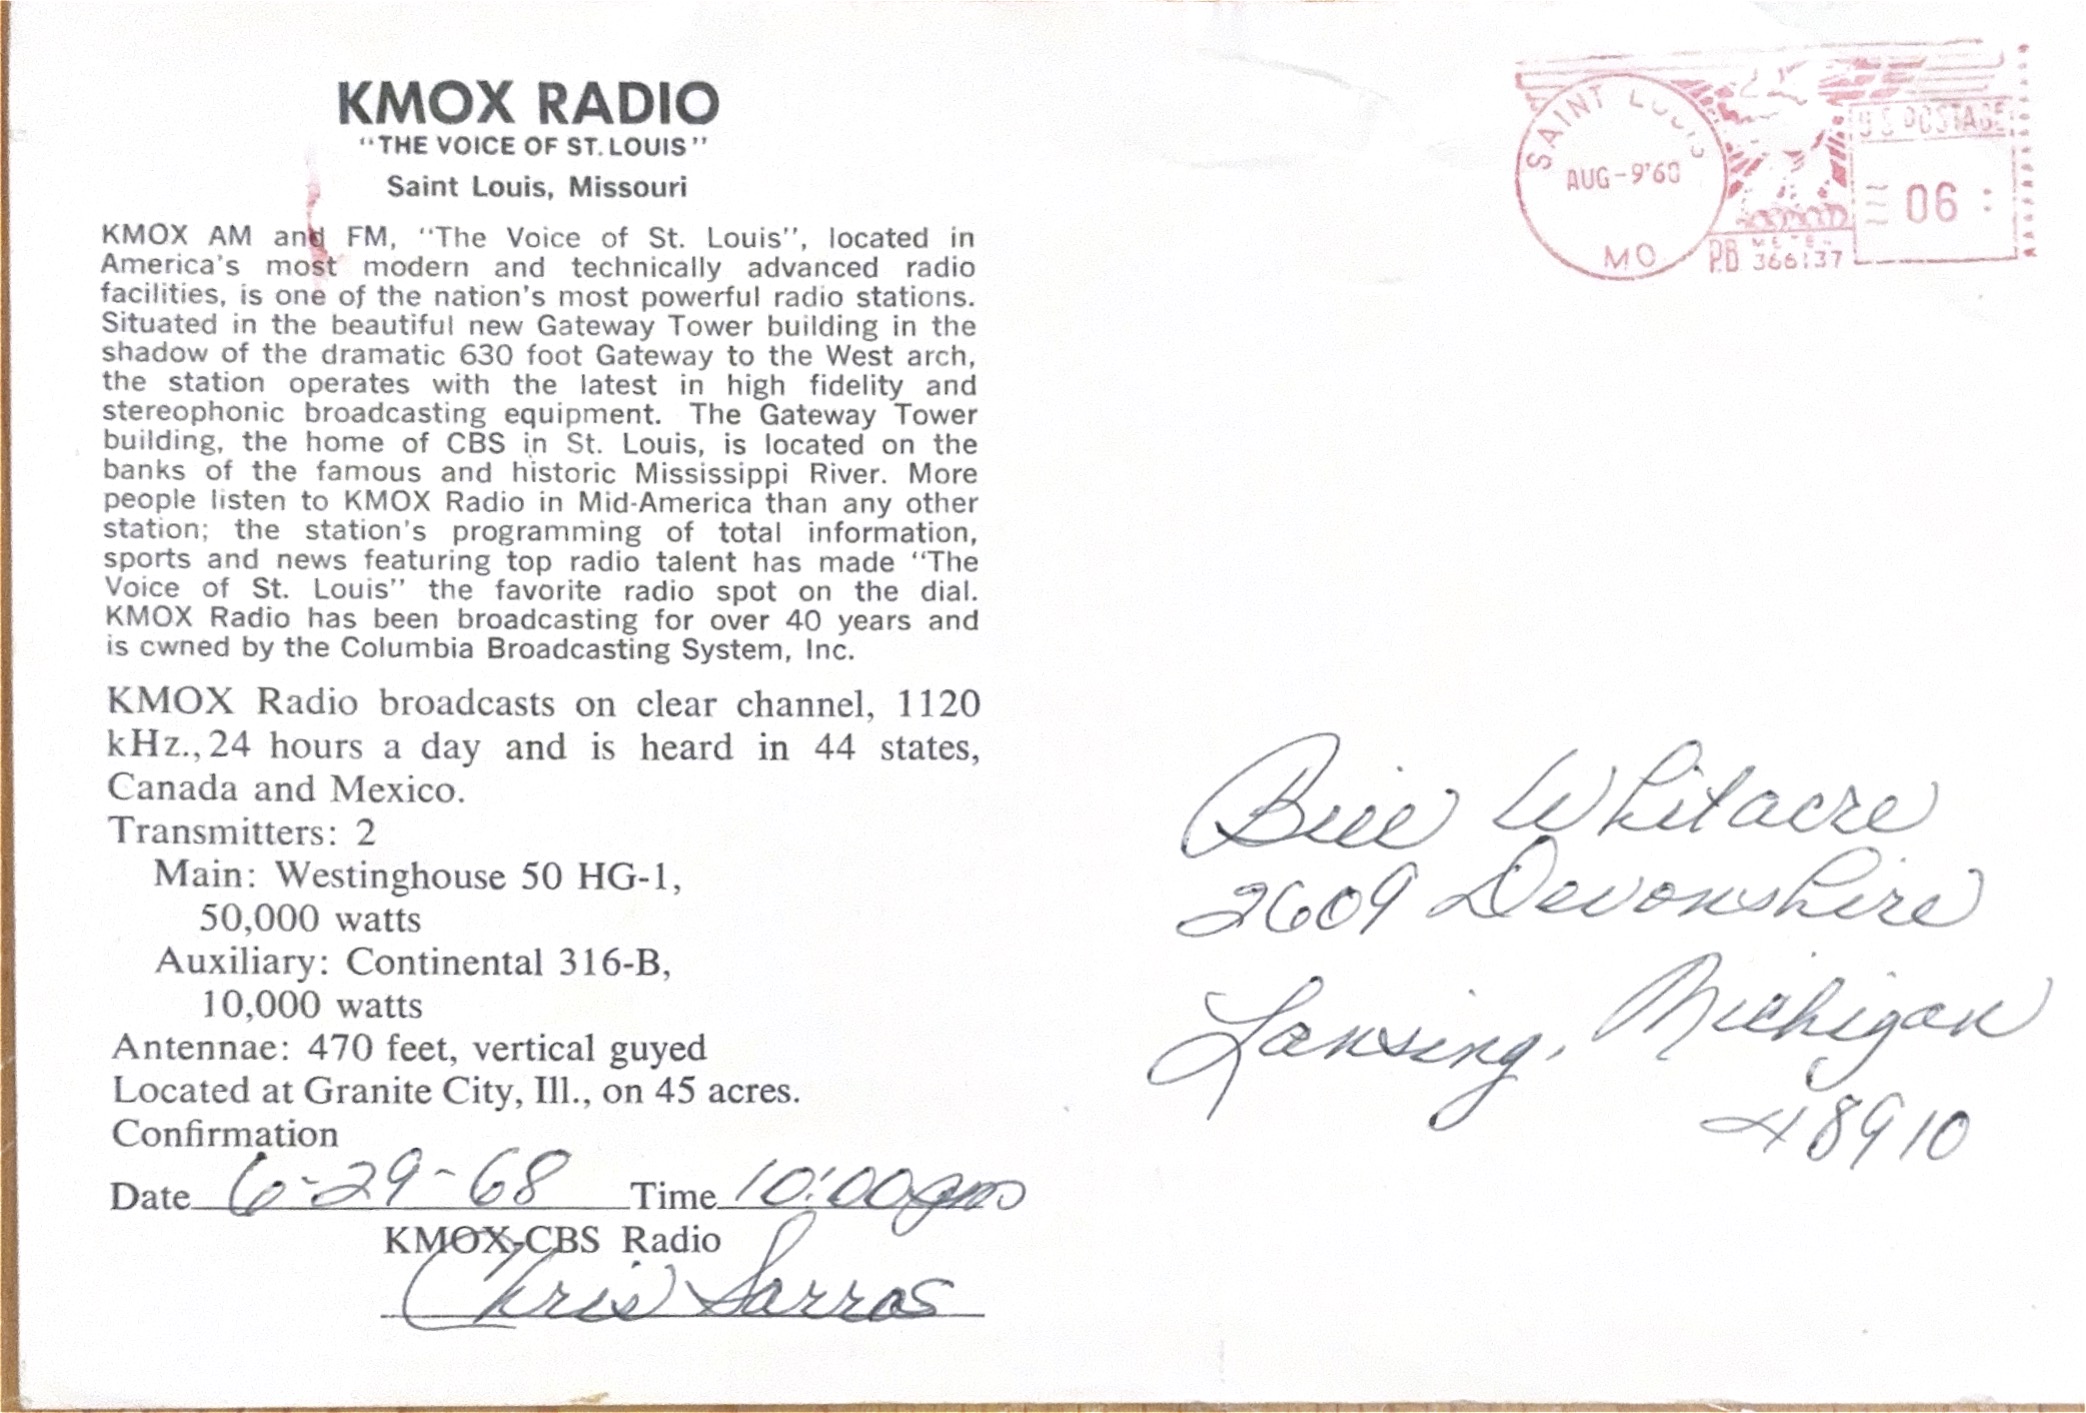 KMOX RADIO
"THE VOICE OF ST. LOUIS"
Saint Louis, Missouri
KMOX AM and FM, "The Voice of St. Louis", located in
America's most modern and technically advanced radio
facilities, is one of the nation's most powerful radio stations.
Situated in the beautiful new Gateway Tower building in the
shadow of the dramatic 630 foot Gateway to the West arch,
the station operates with the latest in high fidelity and
stereophonic broadcasting equipment. The Gateway Tower
building, the home of CBS in St. Louis, is located on the
banks of the famous and historic Mississippi River. More
people listen to KMOX Radio in Mid-America than any other
station; the station's programming of total information,
sports and news featuring top radio talent has made "The
Voice of St. Louis" the favorite radio spot on the dial.
KMOX Radio has been broadcasting for over 40 years and
is cwned by the Columbia Broadcasting System, Inc.
KMOX Radio broadcasts on clear channel, 1120
kHz., 24 hours a day and is heard in 44 states,
Canada and Mexico.
Transmitters: 2
Main: Westinghouse 50 HG-1,
50,000 watts
Auxiliary: Continental 316-B,
10,000 watts
Antennae: 470 feet, vertical guyed
Located at Granite City, Ill., on 45 acres.
Confirmation
Date 6-29-68 Time 10:00pm
KMOX-CBS Radio
Chris Sarros
SAINT LOUIS
AUG-9'68
MO
U.S. POSTAGE
06
P.B. METER
366137
Bill Whitacre
2609 Devonshire
Lansing, Michigan
48910